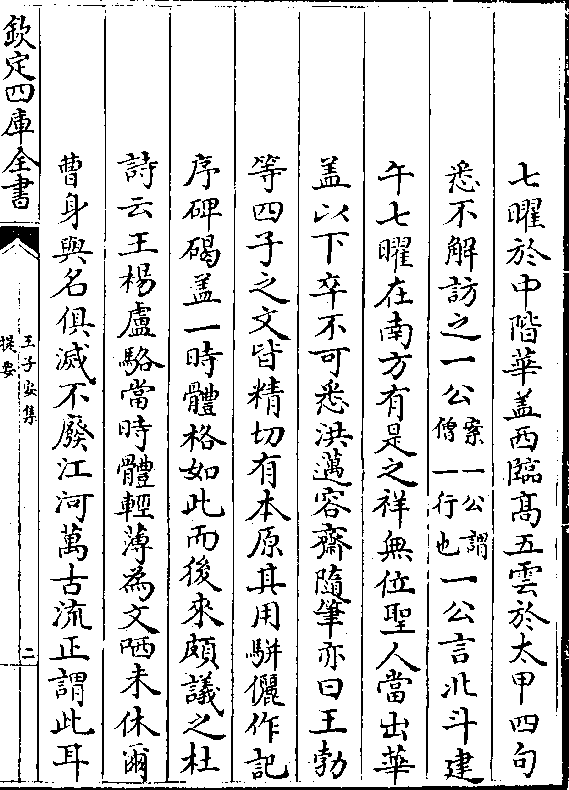 七曜於中階華盖西臨髙五雲於太甲四句
悉不解訪之一公案一公謂僧一行也一公言北斗建
午七曜在南方有是之祥無位聖人當出華
盖以下卒不可悉洪邁容齋隨筆亦曰王勃
等四子之文皆精切有本原其用駢儷作記
序碑碣盖一時體格如此而後來頗議之杜
詩云王楊盧駱當時體輕薄為文哂未休爾
曹身與名俱滅不廢江河萬古流正謂此耳
欽定四庫全書
王子安集
提要
二